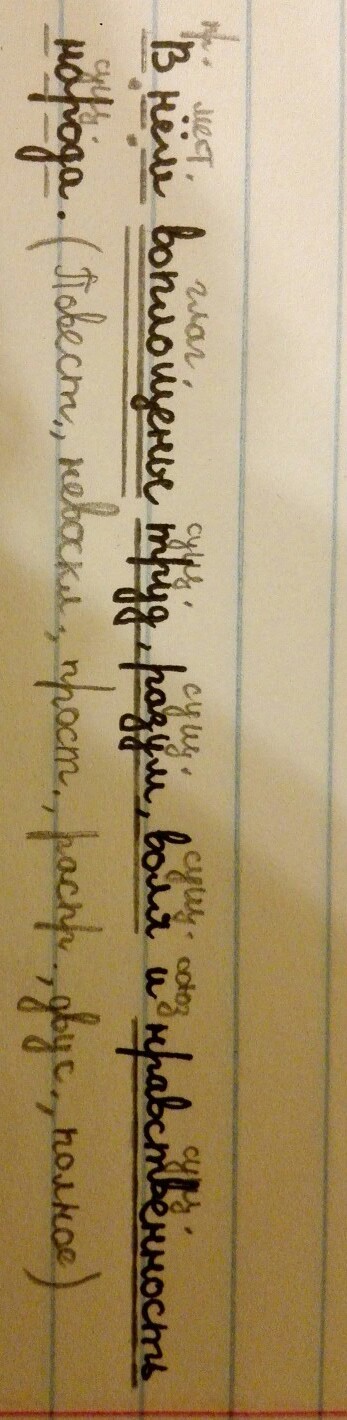 пр. мест. глаг. сущ. сущ. сущ. союз сущ.
В нём воплощенье труд, разум, воля и нравственность
сущ.
народа. (Повест., невоскл., прост., распр., двус., полное)